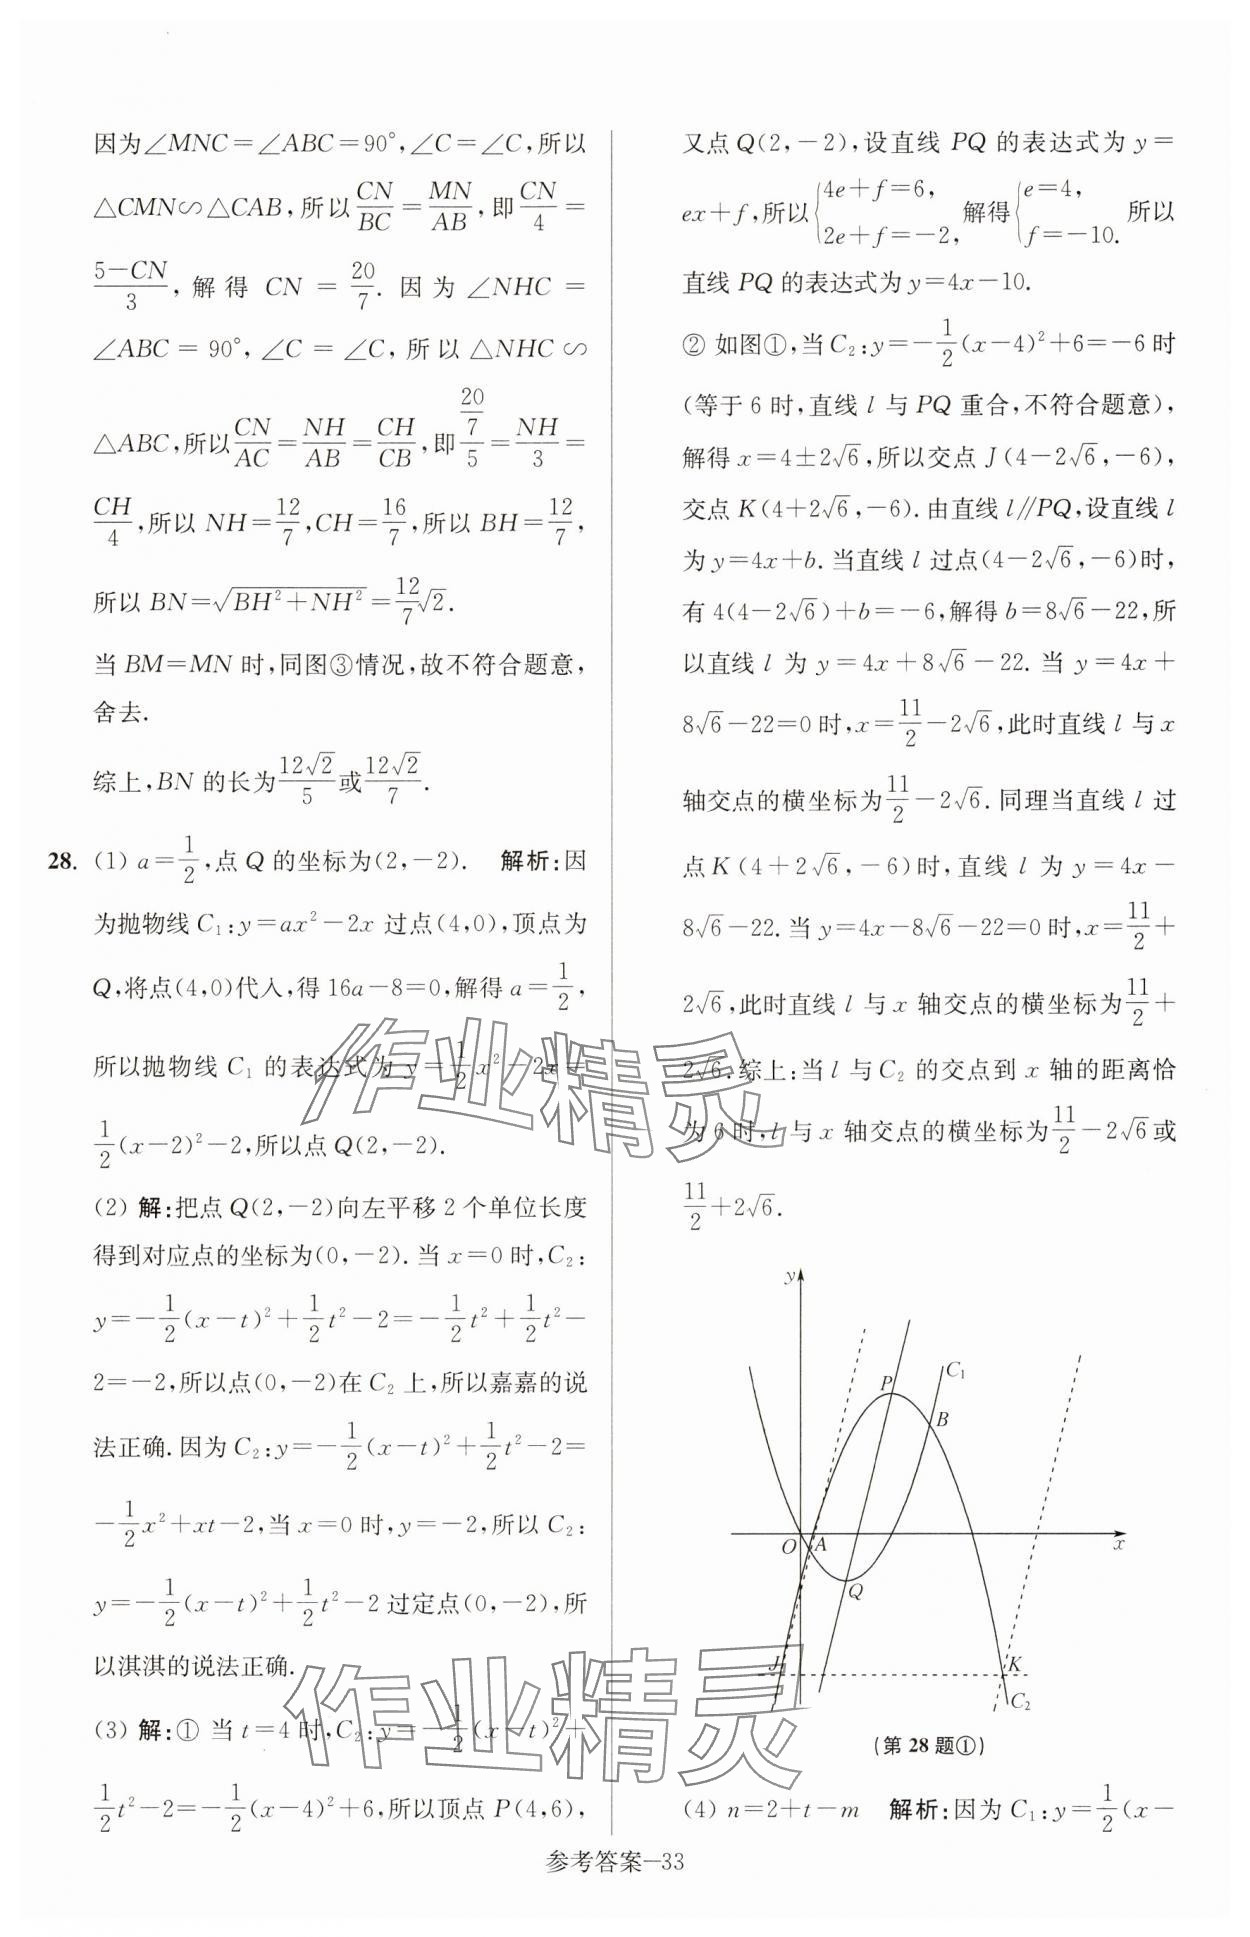 因为∠MNC=∠ABC=90°,∠C=∠C,所以
△CMN∽△CAB,所以CN/BC=MN/AB,即CN/4=
(5-CN)/3,解得 CN=20/7.因为∠NHC=
∠ABC=90°,∠C=∠C,所以△NHC∽
△ABC,所以CN/AC=NH/AB=CH/CB,即(20/7)/5=NH/3=
CH/4,所以 NH=12/7,CH=16/7,所以 BH=12/7,
所以 BN=√(BH²+NH²)=12/7√2.
当 BM=MN 时,同图③情况,故不符合题意,
舍去.
综上,BN 的长为12√2/5或12√2/7.
28. (1) a=1/2,点 Q 的坐标为(2,-2). 解析:因
为抛物线 C₁:y=ax²-2x 过点(4,0),顶点为
Q,将点(4,0)代入,得 16a-8=0,解得 a=1/2,
所以抛物线 C₁ 的表达式为 y=1/2x²-2x=
1/2(x-2)²-2,所以点 Q(2,-2).
(2) 解:把点 Q(2,-2)向左平移 2 个单位长度
得到对应点的坐标为(0,-2).当 x=0 时,C₂:
y=-1/2(x-t)²+1/2t²-2=-1/2t²+1/2t²-
2=-2,所以点(0,-2)在 C₂ 上,所以嘉嘉的说
法正确.因为 C₂:y=-1/2(x-t)²+1/2t²-2=
-1/2x²+xt-2,当 x=0 时,y=-2,所以 C₂:
y=-1/2(x-t)²+1/2t²-2 过定点(0,-2),所
以淇淇的说法正确.
(3) 解:① 当 t=4 时,C₂:y=-1/2(x-t)²+
1/2t²-2=-1/2(x-4)²+6,所以顶点 P(4,6),
又点 Q(2,-2),设直线 PQ 的表达式为 y=
ex+f,所以{4e+f=6, 2e+f=-2,解得{e=4, f=-10.所以
直线 PQ 的表达式为 y=4x-10.
② 如图①,当 C₂:y=-1/2(x-4)²+6=-6 时
(等于 6 时,直线 l 与 PQ 重合,不符合题意),
解得 x=4±2√6,所以交点 J(4-2√6,-6),
交点 K(4+2√6,-6).由直线 l∥PQ,设直线 l
为 y=4x+b.当直线 l 过点(4-2√6,-6)时,
有 4(4-2√6)+b=-6,解得 b=8√6-22,所
以直线 l 为 y=4x+8√6-22.当 y=4x+
8√6-22=0 时,x=11/2-2√6,此时直线 l 与 x
轴交点的横坐标为11/2-2√6.同理当直线 l 过
点 K(4+2√6,-6)时,直线 l 为 y=4x-
8√6-22.当 y=4x-8√6-22=0 时,x=11/2+
2√6,此时直线 l 与 x 轴交点的横坐标为11/2+
2√6.综上:当 l 与 C₂ 的交点到 x 轴的距离恰
为 6 时,l 与 x 轴交点的横坐标为11/2-2√6或
11/2+2√6.
y
P
C₁
B
O
A
x
Q
J
K
C₂
(第 28 题①)
(4) n=2+t-m 解析:因为 C₁:y=1/2(x-
作业精灵
作业精灵
参考答案-33